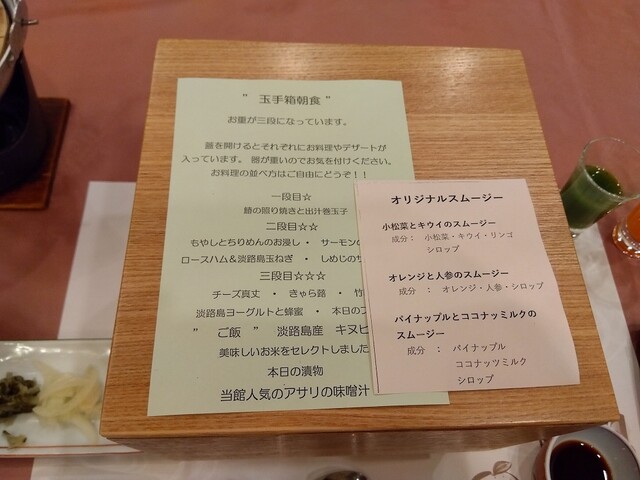 ” 玉手箱朝食 ”
お重が三段になっています。
蓋を開けるとそれぞれにお料理やデザートが
入っています。 器が重いのでお気を付けください。
お料理の並べ方はご自由にどうぞ！！
一段目☆
鰆の照り焼きと出汁巻玉子
二段目☆☆
もやしとちりめんのお浸し ・ サーモンの
ロースハム＆淡路島玉ねぎ ・ しめじの
三段目☆☆☆
チーズ真丈 ・ きゃら蕗 ・ 竹
淡路島ヨーグルトと蜂蜜 ・ 本日の
” ご飯 ” 淡路島産 キヌヒ
美味しいお米をセレクトしました
本日の漬物
当館人気のアサリの味噌汁
オリジナルスムージー
小松菜とキウイのスムージー
成分： 小松菜・キウイ・リンゴ
シロップ
オレンジと人参のスムージー
成分 ： オレンジ・人参・シロップ
パイナップルとココナッツミルクの
スムージー
成分 ： パイナップル
ココナッツミルク
シロップ